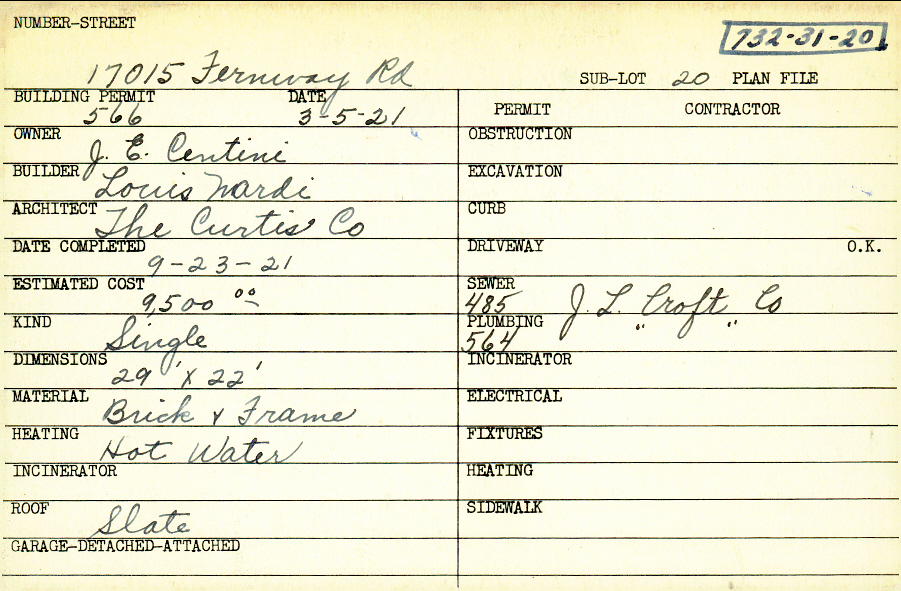 NUMBER-STREET
732-31-20
17015 Fernway Rd
SUB-LOT 20 PLAN FILE
BUILDING PERMIT DATE
566 3-5-21
PERMIT CONTRACTOR
OWNER J. E. Centini
OBSTRUCTION
BUILDER Louis Nardi
EXCAVATION
ARCHITECT The Curtis Co
CURB
DATE COMPLETED
9-23-21
DRIVEWAY O.K.
ESTIMATED COST
9,500 00
SEWER
485 J. L. Croft Co
KIND Single
PLUMBING
564 " "
DIMENSIONS
29' X 22'
INCINERATOR
MATERIAL Brick & Frame
ELECTRICAL
HEATING Hot Water
FIXTURES
INCINERATOR
HEATING
ROOF Slate
SIDEWALK
GARAGE-DETACHED-ATTACHED